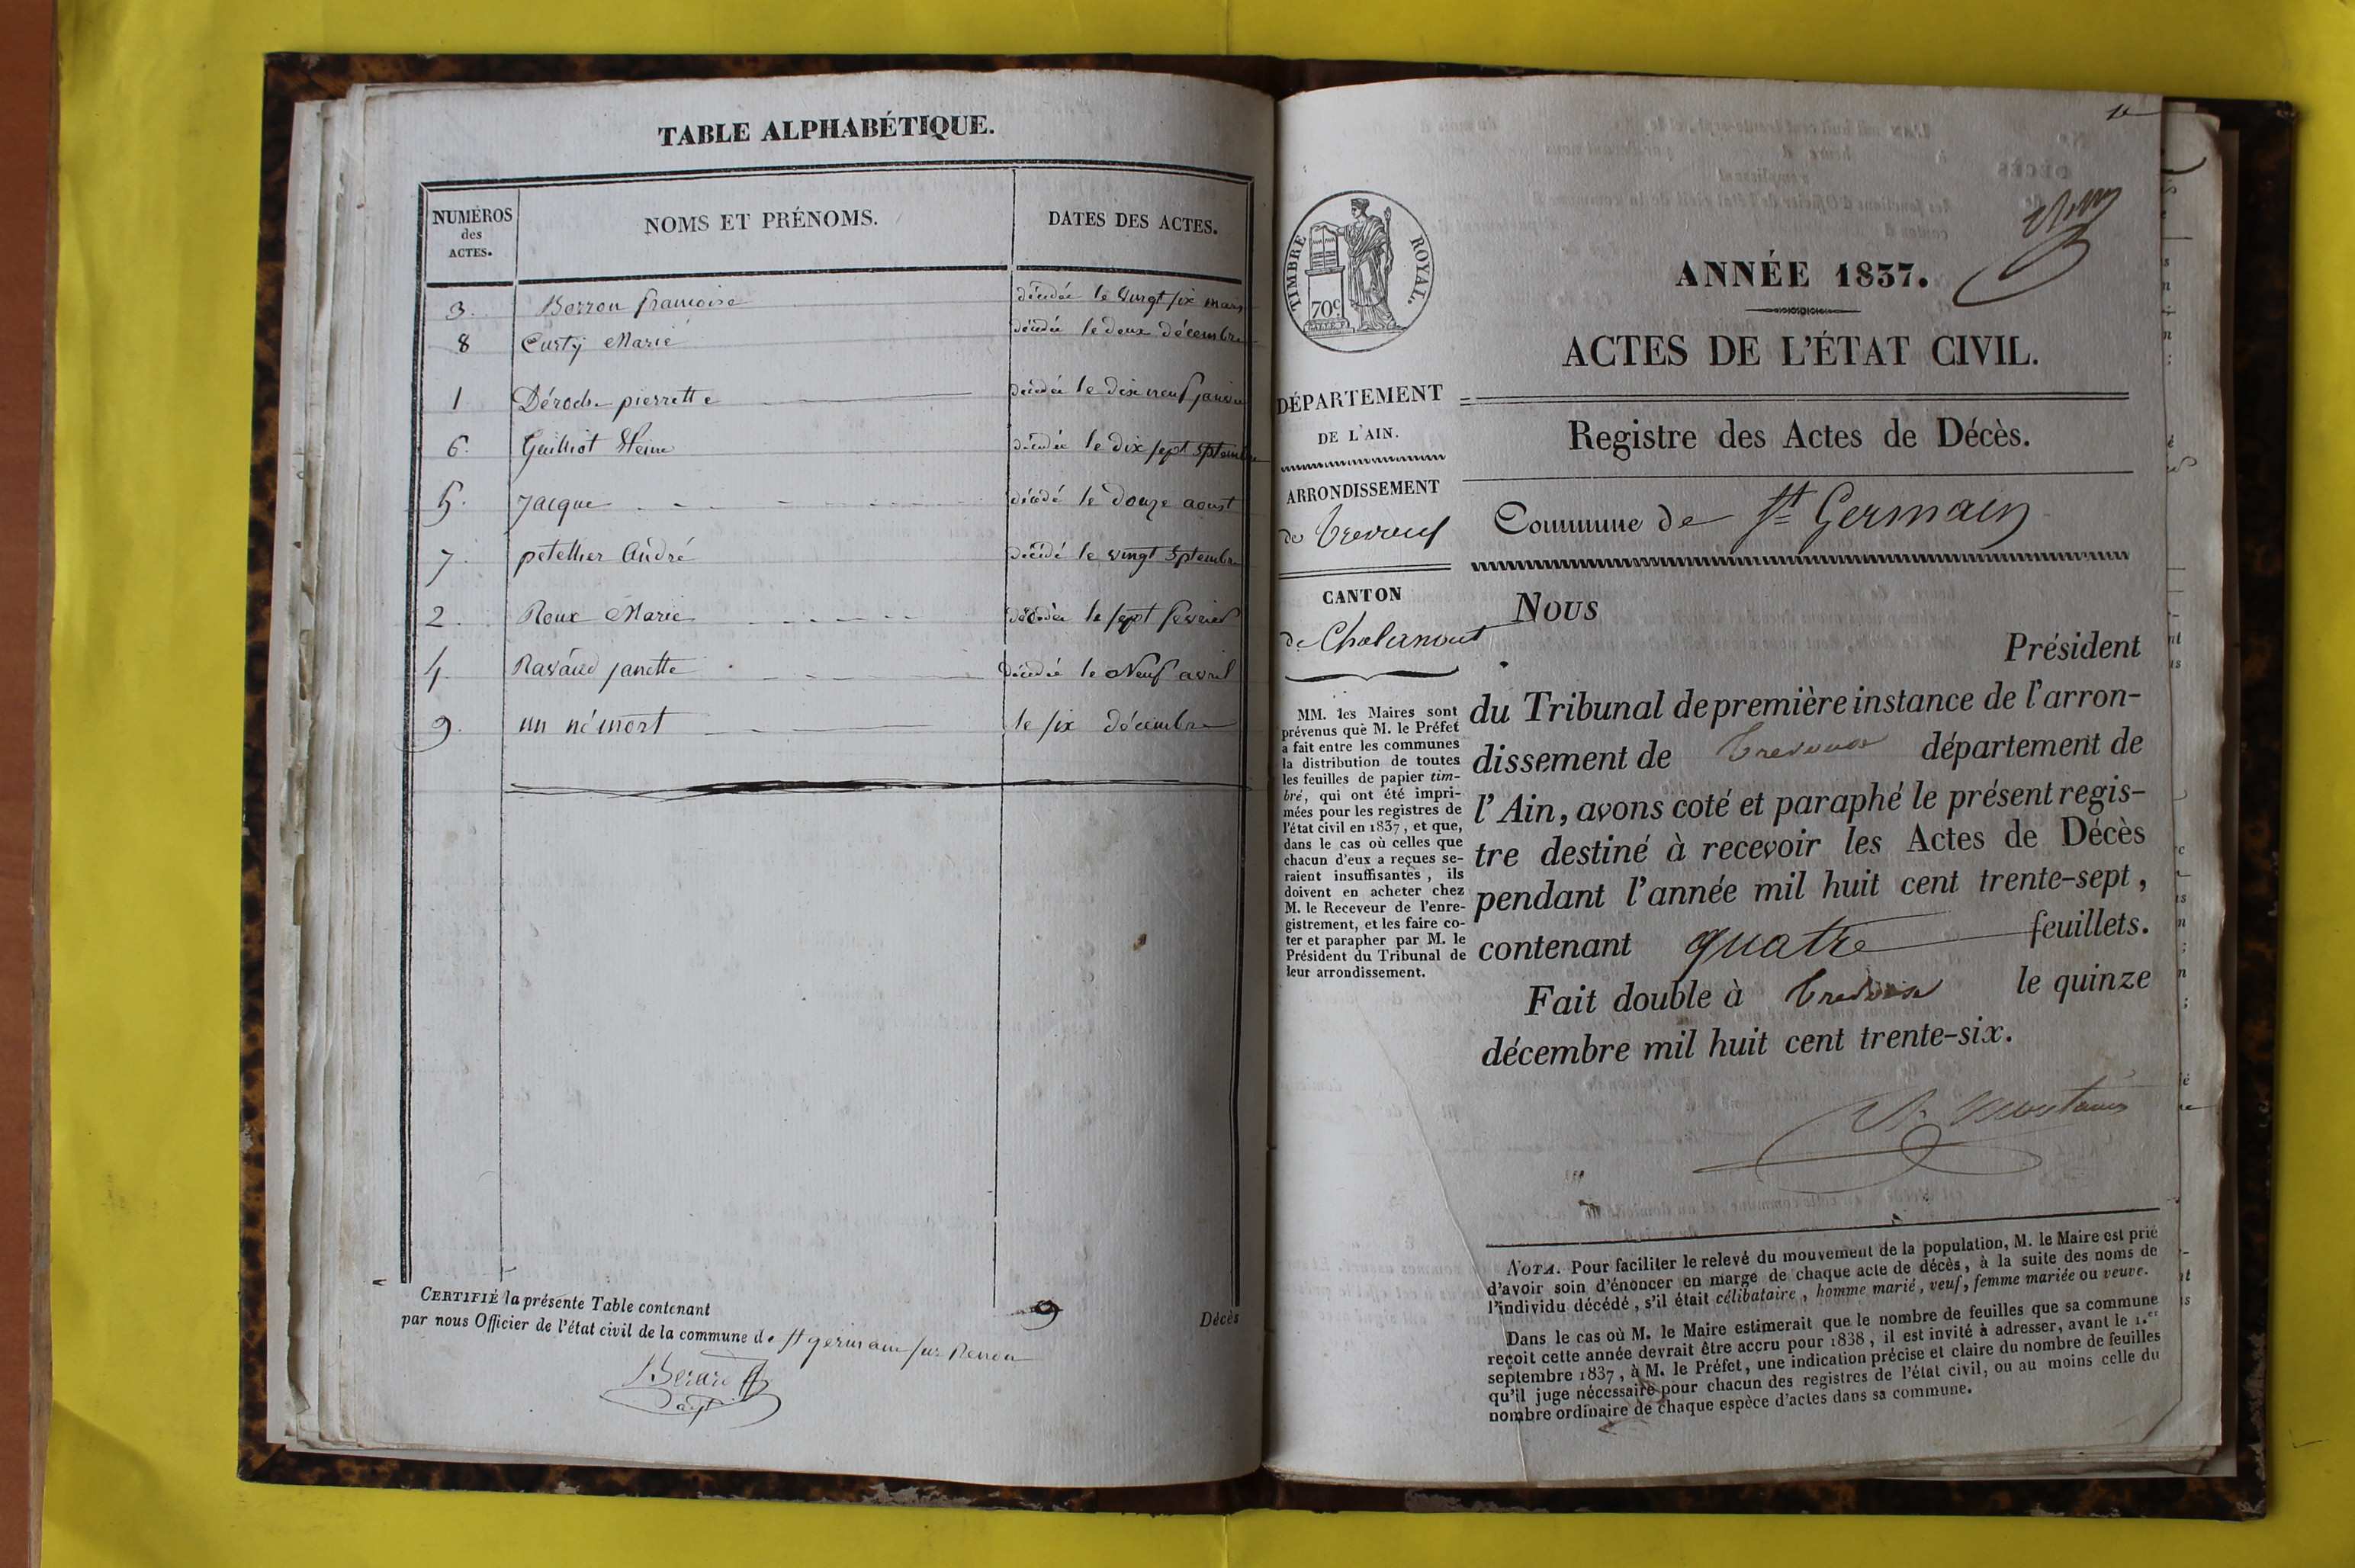 TABLE ALPHABÉTIQUE.
NUMÉROS des ACTES. NOMS ET PRÉNOMS. DATES DES ACTES.
3. Borron françoise décédée le vingt six mars
8 Curty Marie décédée le deux décembre
1 Déroche pierrette décédée le dix neuf janvier
6. Guilliot décédée le dix sept Sptembre
5. Jacque décédé le douze aoust
7. petellier André décédé le vingt Sptembre
2. Roux Marie décédée le sept fevrier
4 Ravaud janette décédée le Neuf avril
9. un né mort le six décembre
CERTIFIÉ la présente Table contenant 9 Décès
par nous Officier de l'état civil de la commune de st germain sur Renon
Berard
adjt
TIMBRE ROYAL.
70c.
DÉPARTEMENT
DE L'AIN.
ARRONDISSEMENT
de Trevoux
CANTON
de Chalamont
MM. les Maires sont
prévenus que M. le Préfet
a fait entre les communes
la distribution de toutes
les feuilles de papier tim-
bré, qui ont été impri-
mées pour les registres de
l'état civil en 1837, et que,
dans le cas où celles que
chacun d'eux a reçues se-
raient insuffisantes, ils
doivent en acheter chez
M. le Receveur de l'enre-
gistrement, et les faire co-
ter et parapher par M. le
Président du Tribunal de
leur arrondissement.
ANNÉE 1837.
ACTES DE L'ÉTAT CIVIL.
Registre des Actes de Décès.
Commune de St Germain
Nous
Président
du Tribunal de première instance de l'arron-
dissement de Trevoux département de
l'Ain, avons coté et paraphé le présent regis-
tre destiné à recevoir les Actes de Décès
pendant l'année mil huit cent trente-sept,
contenant quatre feuillets.
Fait double à Trevoux le quinze
décembre mil huit cent trente-six.
NOTA. Pour faciliter le relevé du mouvement de la population, M. le Maire est prié
d'avoir soin d'énoncer en marge de chaque acte de décès, à la suite des noms de
l'individu décédé, s'il était célibataire, homme marié, veuf, femme mariée ou veuve.
Dans le cas où M. le Maire estimerait que le nombre de feuilles que sa commune
reçoit cette année devrait être accru pour 1838, il est invité à adresser, avant le 1.er
septembre 1837, à M. le Préfet, une indication précise et claire du nombre de feuilles
qu'il juge nécessaire pour chacun des registres de l'état civil, ou au moins celle du
nombre ordinaire de chaque espèce d'actes dans sa commune.